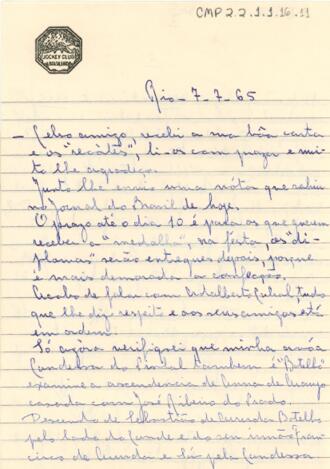 CMP 2.2.1.1.16.11
JOCKEY CLUB
BRASILEIRO
Rio - 7-7-65
- Celso amigo, recebi a sua bôa carta
e os "recortes", li-os com prazer e mui-
to lhe agradeço.
Junto lhe envio uma nóta que sahiu
no Jornal do Brasil de hoje.
O prazo até o dia 10 é para os que querem
receber a "medalha", na festa, os "di-
plomas" serão entregues depois, porque
é mais demorada a confecção.
Acabo de falar com Adalberto Cabral, tudo
que lhe diz respeito e aos seus amigos está
em ordem.
Só agora verifiquei que minha avó
Condessa do Pinhal tambem é "Botelho"
examine a ascendencia de Anna de Araujo
casada com José Ribeiro do Prado.
Descendo de Sebastião de Arruda Botelho
pelo lado do Conde e do seu irmão Fran-
cisco de Arruda e Sá pela Condessa